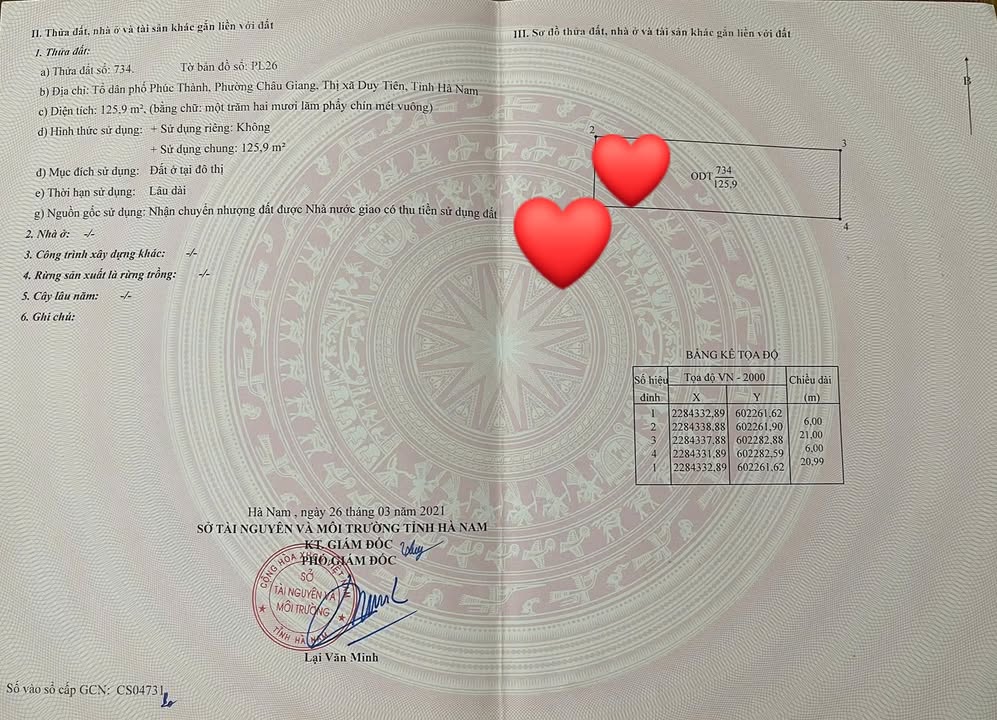 II. Thửa đất, nhà ở và tài sản khác gắn liền với đất
1. Thửa đất:
a) Thửa đất số: 734.    Tờ bản đồ số: PL26
b) Địa chỉ: Tổ dân phố Phúc Thành, Phường Châu Giang, Thị xã Duy Tiên, Tỉnh Hà Nam
c) Diện tích: 125,9 m², (bằng chữ: một trăm hai mươi lăm phẩy chín mét vuông)
d) Hình thức sử dụng: + Sử dụng riêng: Không
+ Sử dụng chung: 125,9 m²
đ) Mục đích sử dụng: Đất ở tại đô thị
e) Thời hạn sử dụng: Lâu dài
g) Nguồn gốc sử dụng: Nhận chuyển nhượng đất được Nhà nước giao có thu tiền sử dụng đất
2. Nhà ở: -/-
3. Công trình xây dựng khác: -/-
4. Rừng sản xuất là rừng trồng: -/-
5. Cây lâu năm: -/-
6. Ghi chú:
Hà Nam , ngày 26 tháng 03 năm 2021
SỞ TÀI NGUYÊN VÀ MÔI TRƯỜNG TỈNH HÀ NAM
KT. GIÁM ĐỐC
PHÓ GIÁM ĐỐC
SỞ
TÀI NGUYÊN VÀ
MÔI TRƯỜNG
TỈNH HÀ NAM
Lại Văn Minh
Số vào sổ cấp GCN: CS04731
III. Sơ đồ thửa đất, nhà ở và tài sản khác gắn liền với đất
B
2
3
ODT 734
125,9
4
BẢNG KÊ TỌA ĐỘ
Số hiệu đỉnh    Tọa độ VN - 2000    Chiều dài (m)
X    Y
1    2284332,89    602261,62
6,00
2    2284338,88    602261,90
21,00
3    2284337,88    602282,88
6,00
4    2284331,89    602282,59
20,99
1    2284332,89    602261,62